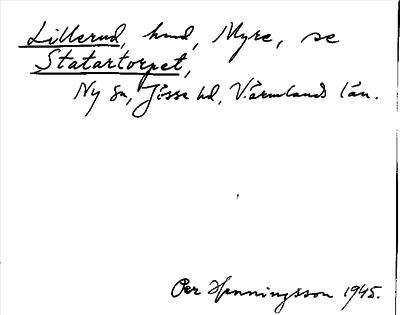 Lillerud, hmd, Myre, se
Statartorpet,
Ny sn, Jösse hd, Värmlands län.
Per Henningsson 1945.